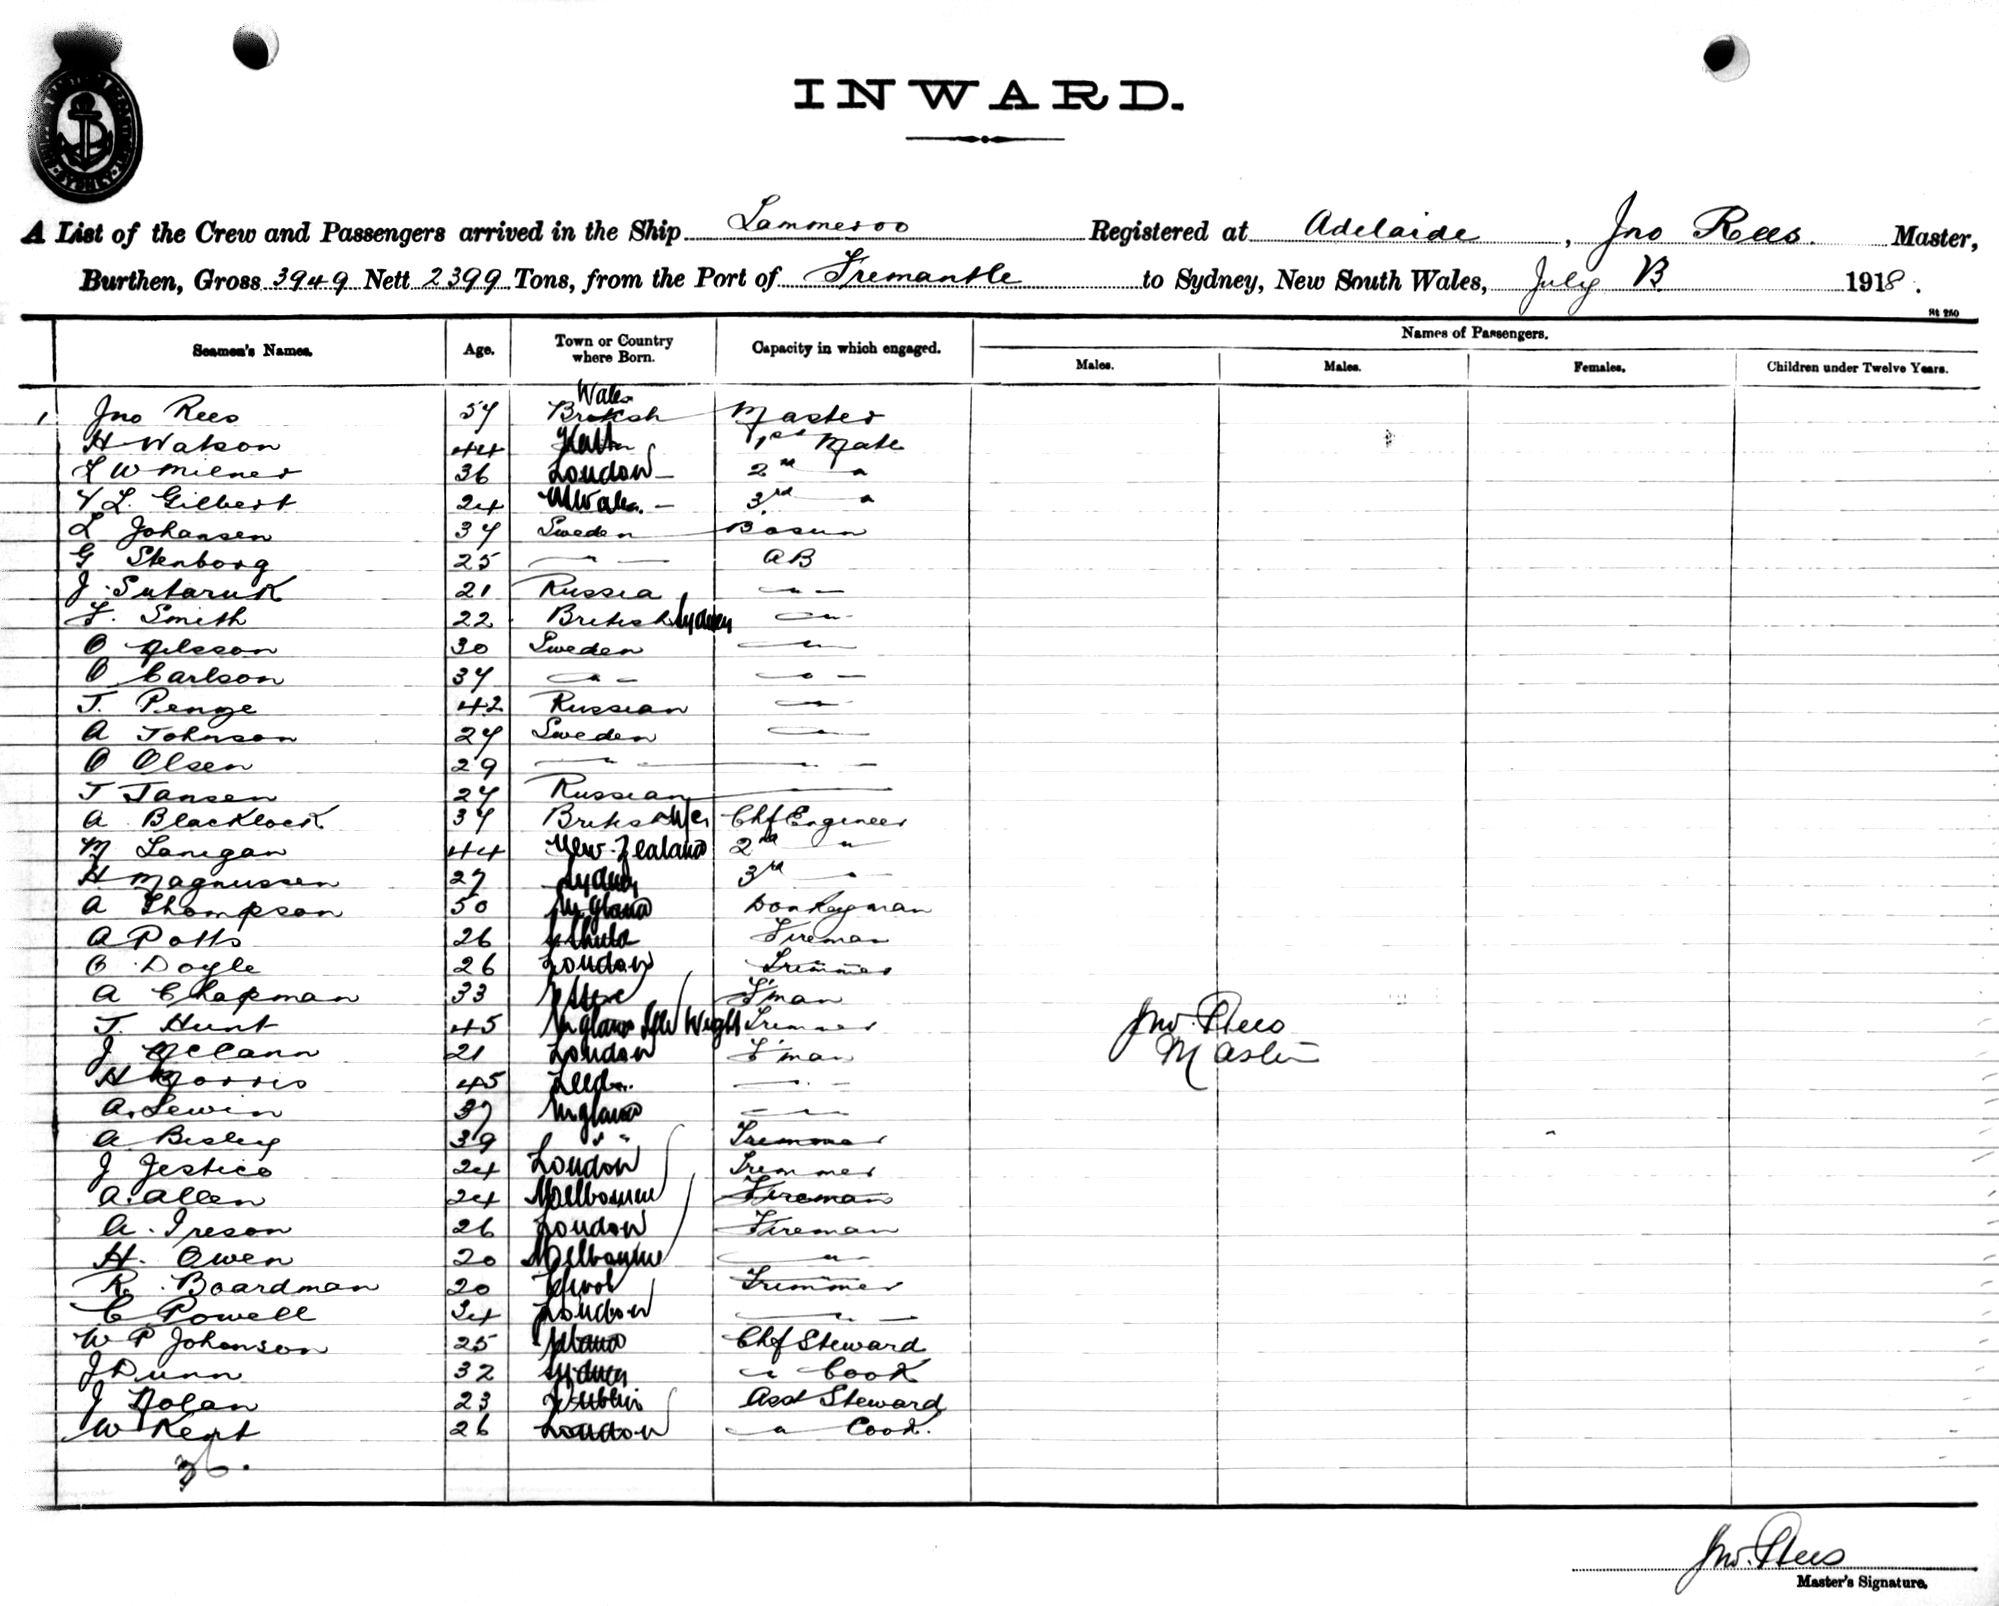 INWARD.
A List of the Crew and Passengers arrived in the Ship Lammeroo Registered at Adelaide, Jno Rees. Master,
Burthen, Gross 3949 Nett 2399 Tons, from the Port of Fremantle to Sydney, New South Wales, July 1918.
St 250
Seamen's Names. Age. Town or Country where Born. Capacity in which engaged. Names of Passengers.
Males. Males. Females. Children under Twelve Years.
Wales
1 Jno Rees 57 British Master
H Watson 44 1st Mate
W Milner 36 London 2nd "
L. Gilbert 24 3rd "
L Johansen 37 Sweden Bosun
G Stenborg 25 — " — AB
J. Sutaruk 21 Russia — " —
F. Smith 22 British Sydney — " —
O Nilsson 30 Sweden — " —
O Carlson 37 — " — — " —
J. Penge 42 Russian — " —
A Johnson 27 Sweden — " —
O Olsen 29 — " — — " —
J Jansen 27 Russian — " —
A Blacklock 37 British Chf Engineer
M Lanigan 44 New Zealand 2nd "
H Magnussen 27 Sydney 3rd "
A Thompson 50 England Donkeyman
A Potts 26 Fireman
Doyle 26 London Trimmer
A Chapman 33 F'man
T. Hunt 45 England Isle Wight Trimmer
J McCann 21 London F'man
H Morris 45 Leeds — " —
A. Lewin 37 England — " —
A Bisley 39 " " Trimmer
J Jestico 24 London Trimmer
A. Allen 24 Melbourne Fireman
A. Ireson 26 London Fireman
H. Owen 20 Melbourne — " —
R. Boardman 20 Trimmer
C Powell 34 London — " —
W P Johanson 25 Chf Steward
J Dunn 32 Sydney " Cook
J Nolan 23 Dublin Asst Steward
W Kent 26 London — " Cook.
36.
Jno. Rees
Master
Jno. Rees
Master's Signature.